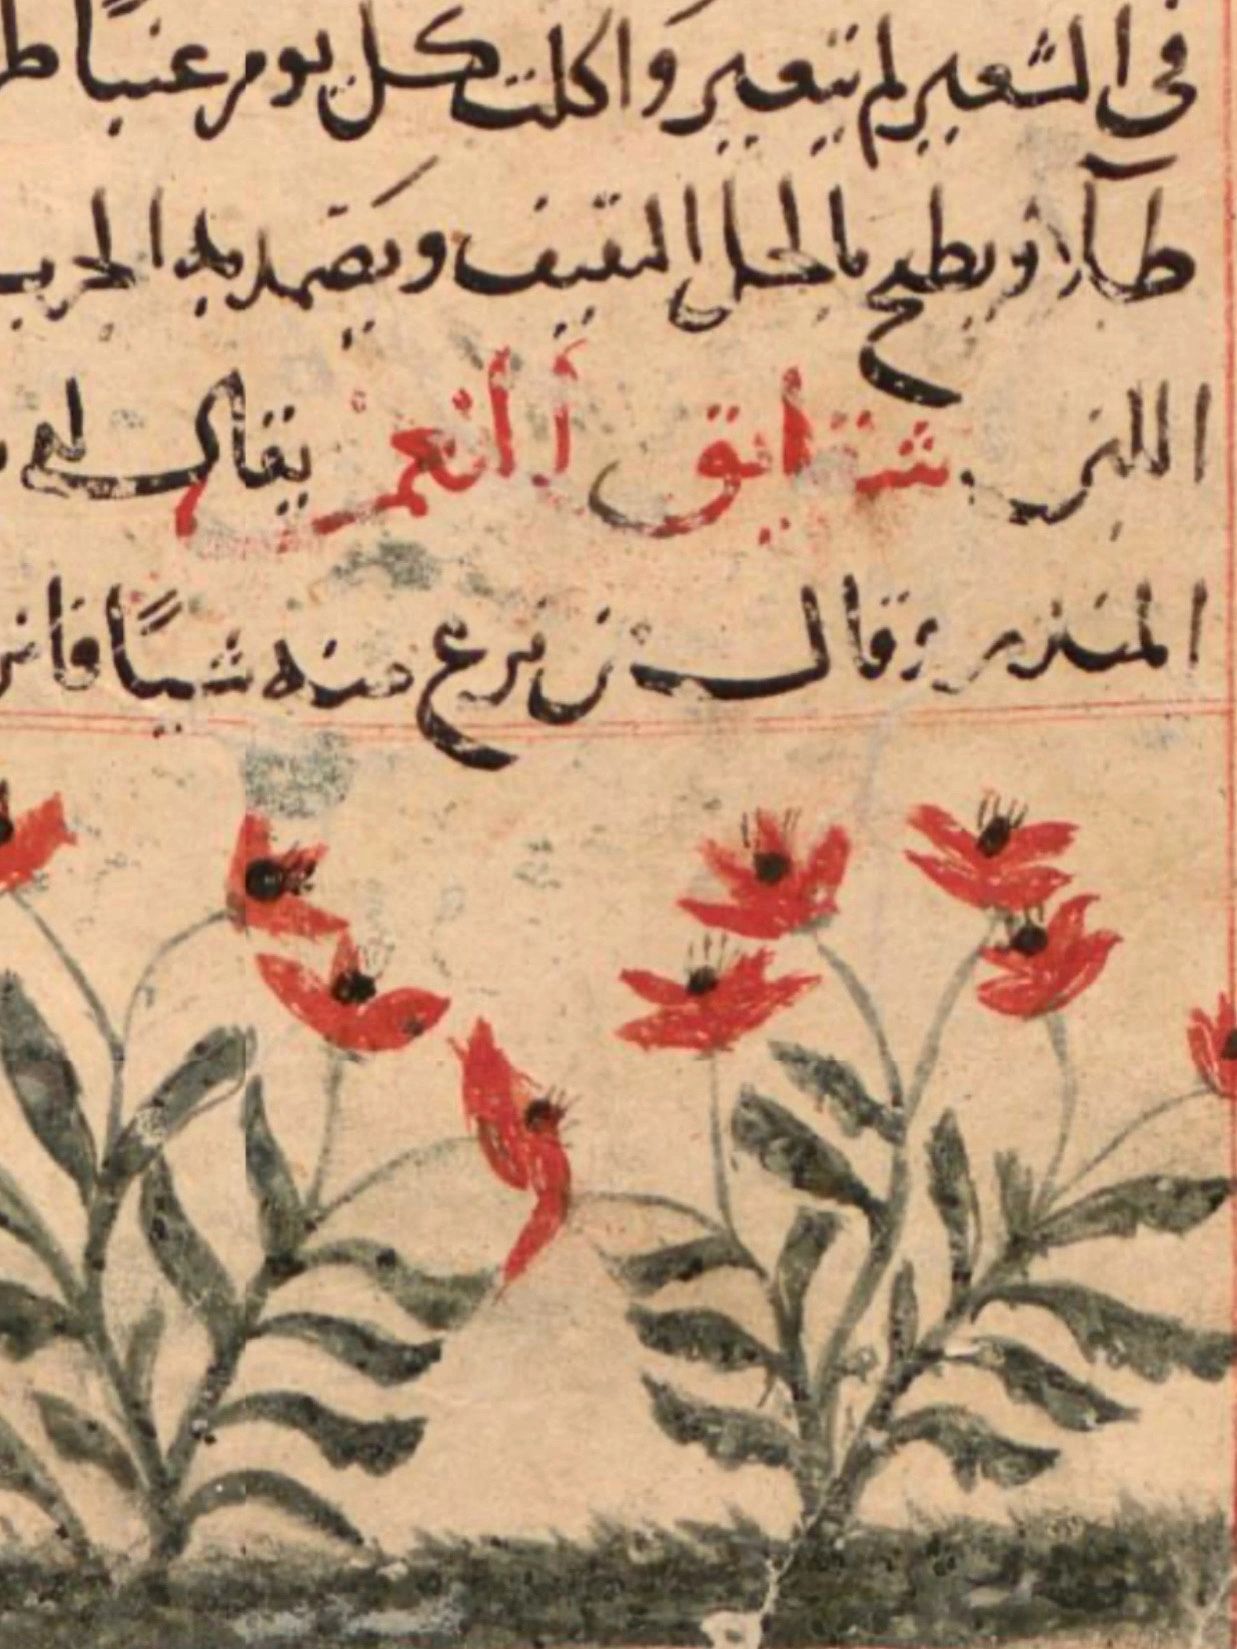 في الشعير لم يتغير واكلت كل يوم عنبا
طاريا ويطبخ بالخل الثقيف ويضمد به الجرب
اللبن شقايق النعمن يقال
المنذر وقال من نزع منه شيئا